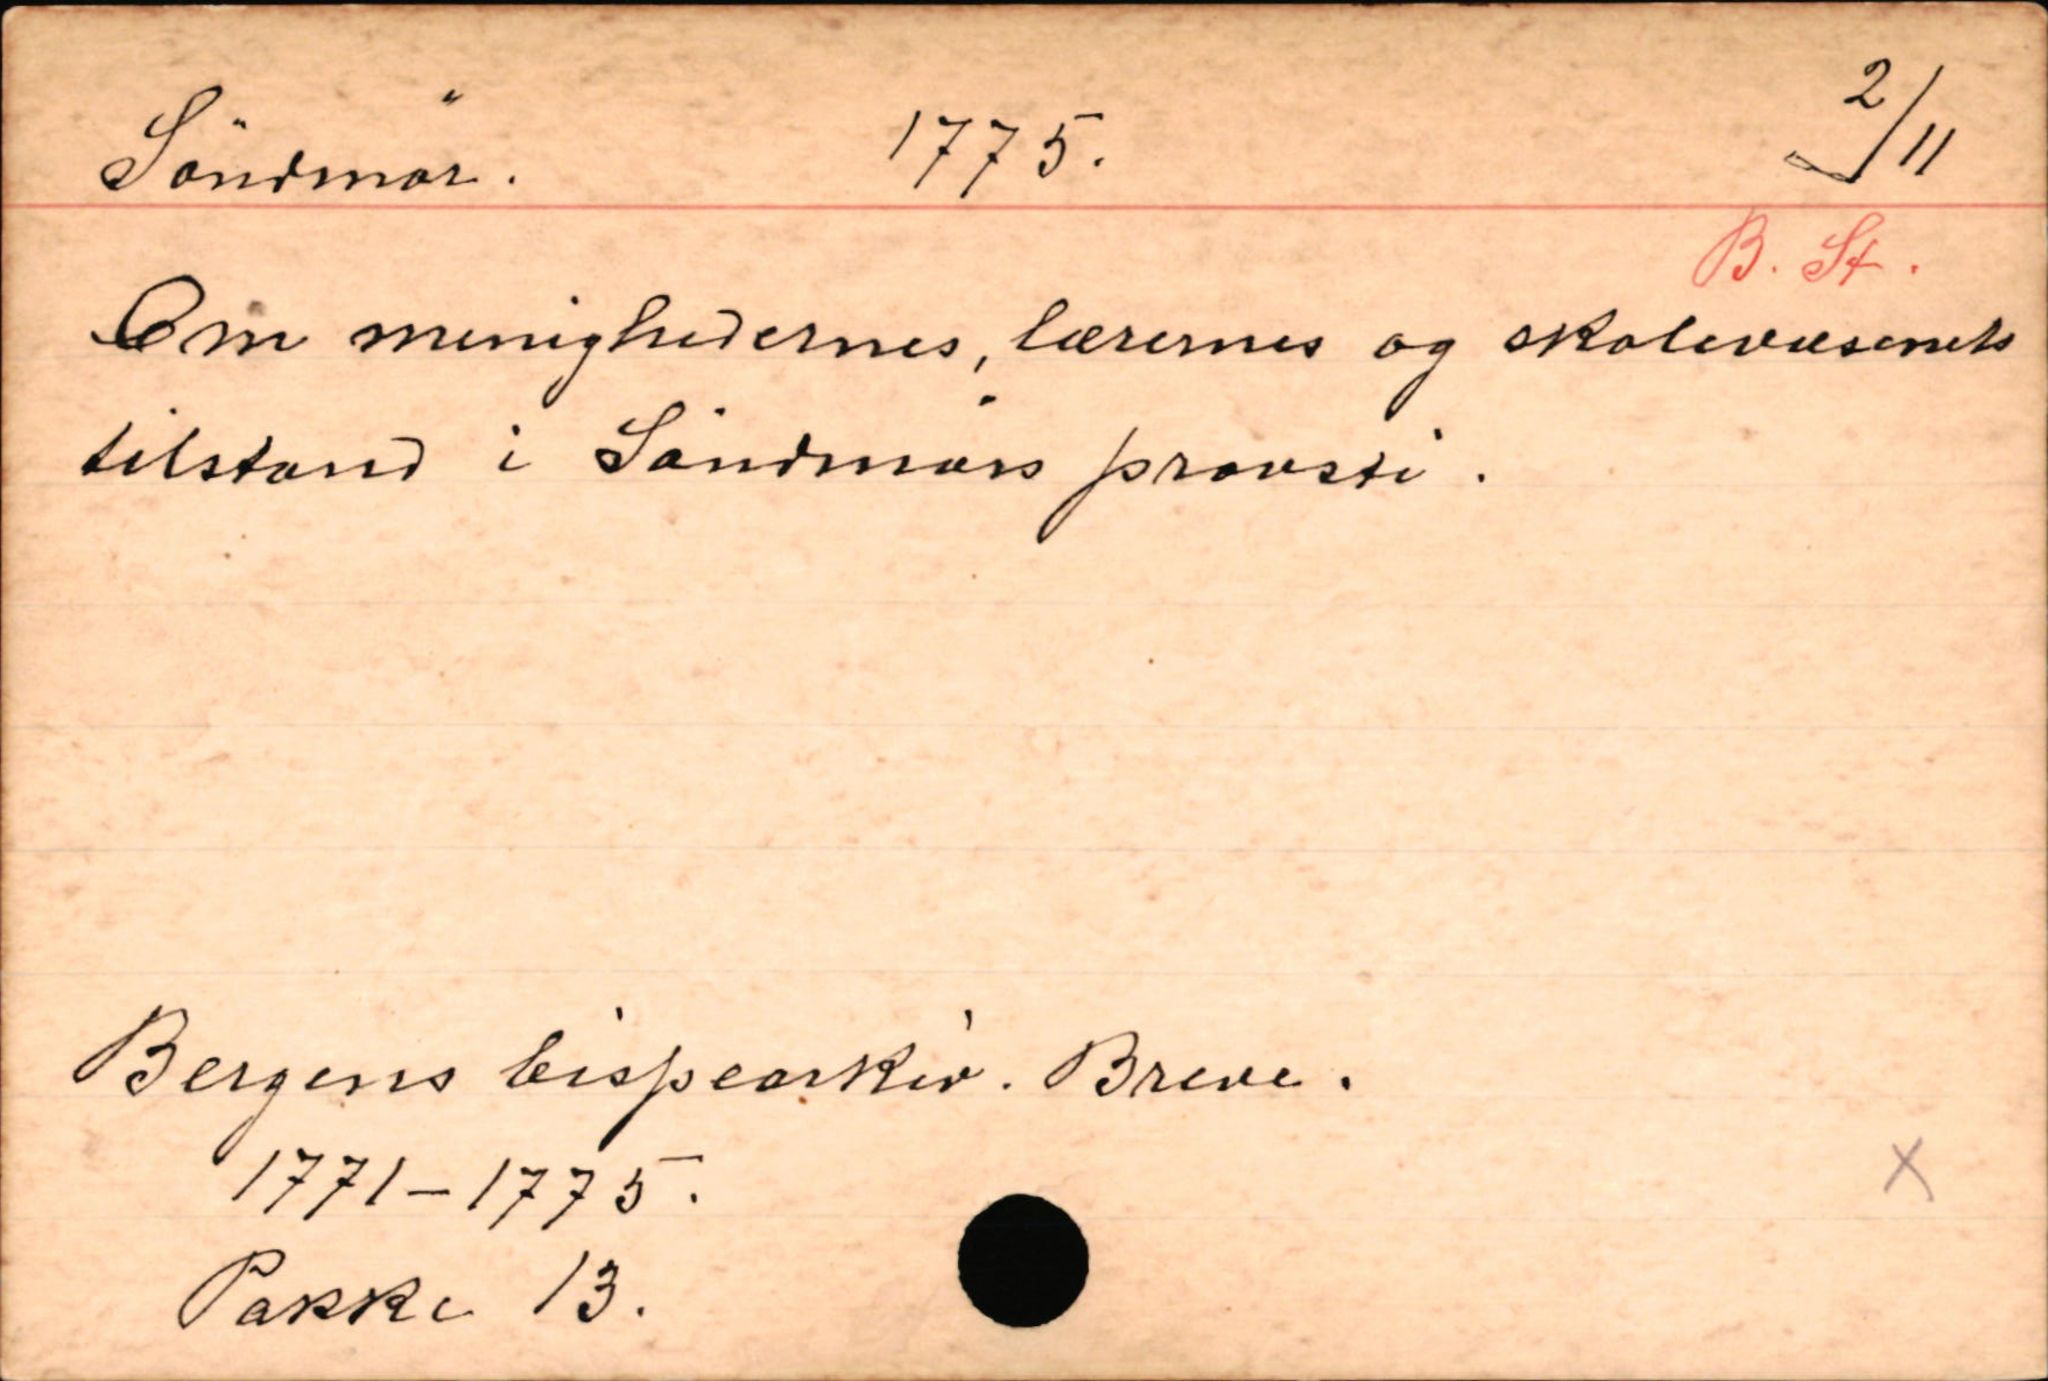 Söndmör. 1775. 2/11
B. St.
Om menighedernes, lærernes og skolevæsenets
tilstand i Söndmörs provsti.
Bergens bispearkiv. Breve.
1771-1775.
Pakke 13.
X